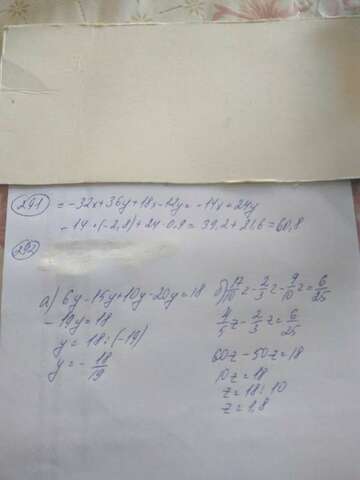 291 = -32x+36y+18x-12y = -14x+24y
-14·(-2,8)+24·0,9 = 39,2+21,6 = 60,8
292
а) 6y-15y+10y-20y=18
-19y=18
y = 18:(-19)
y = -18/19
б) 17/10 z - 2/3 z - 9/10 z = 6/25
4/5 z - 2/3 z = 6/25
60z - 50z = 18
10z = 18
z = 18:10
z = 1,8